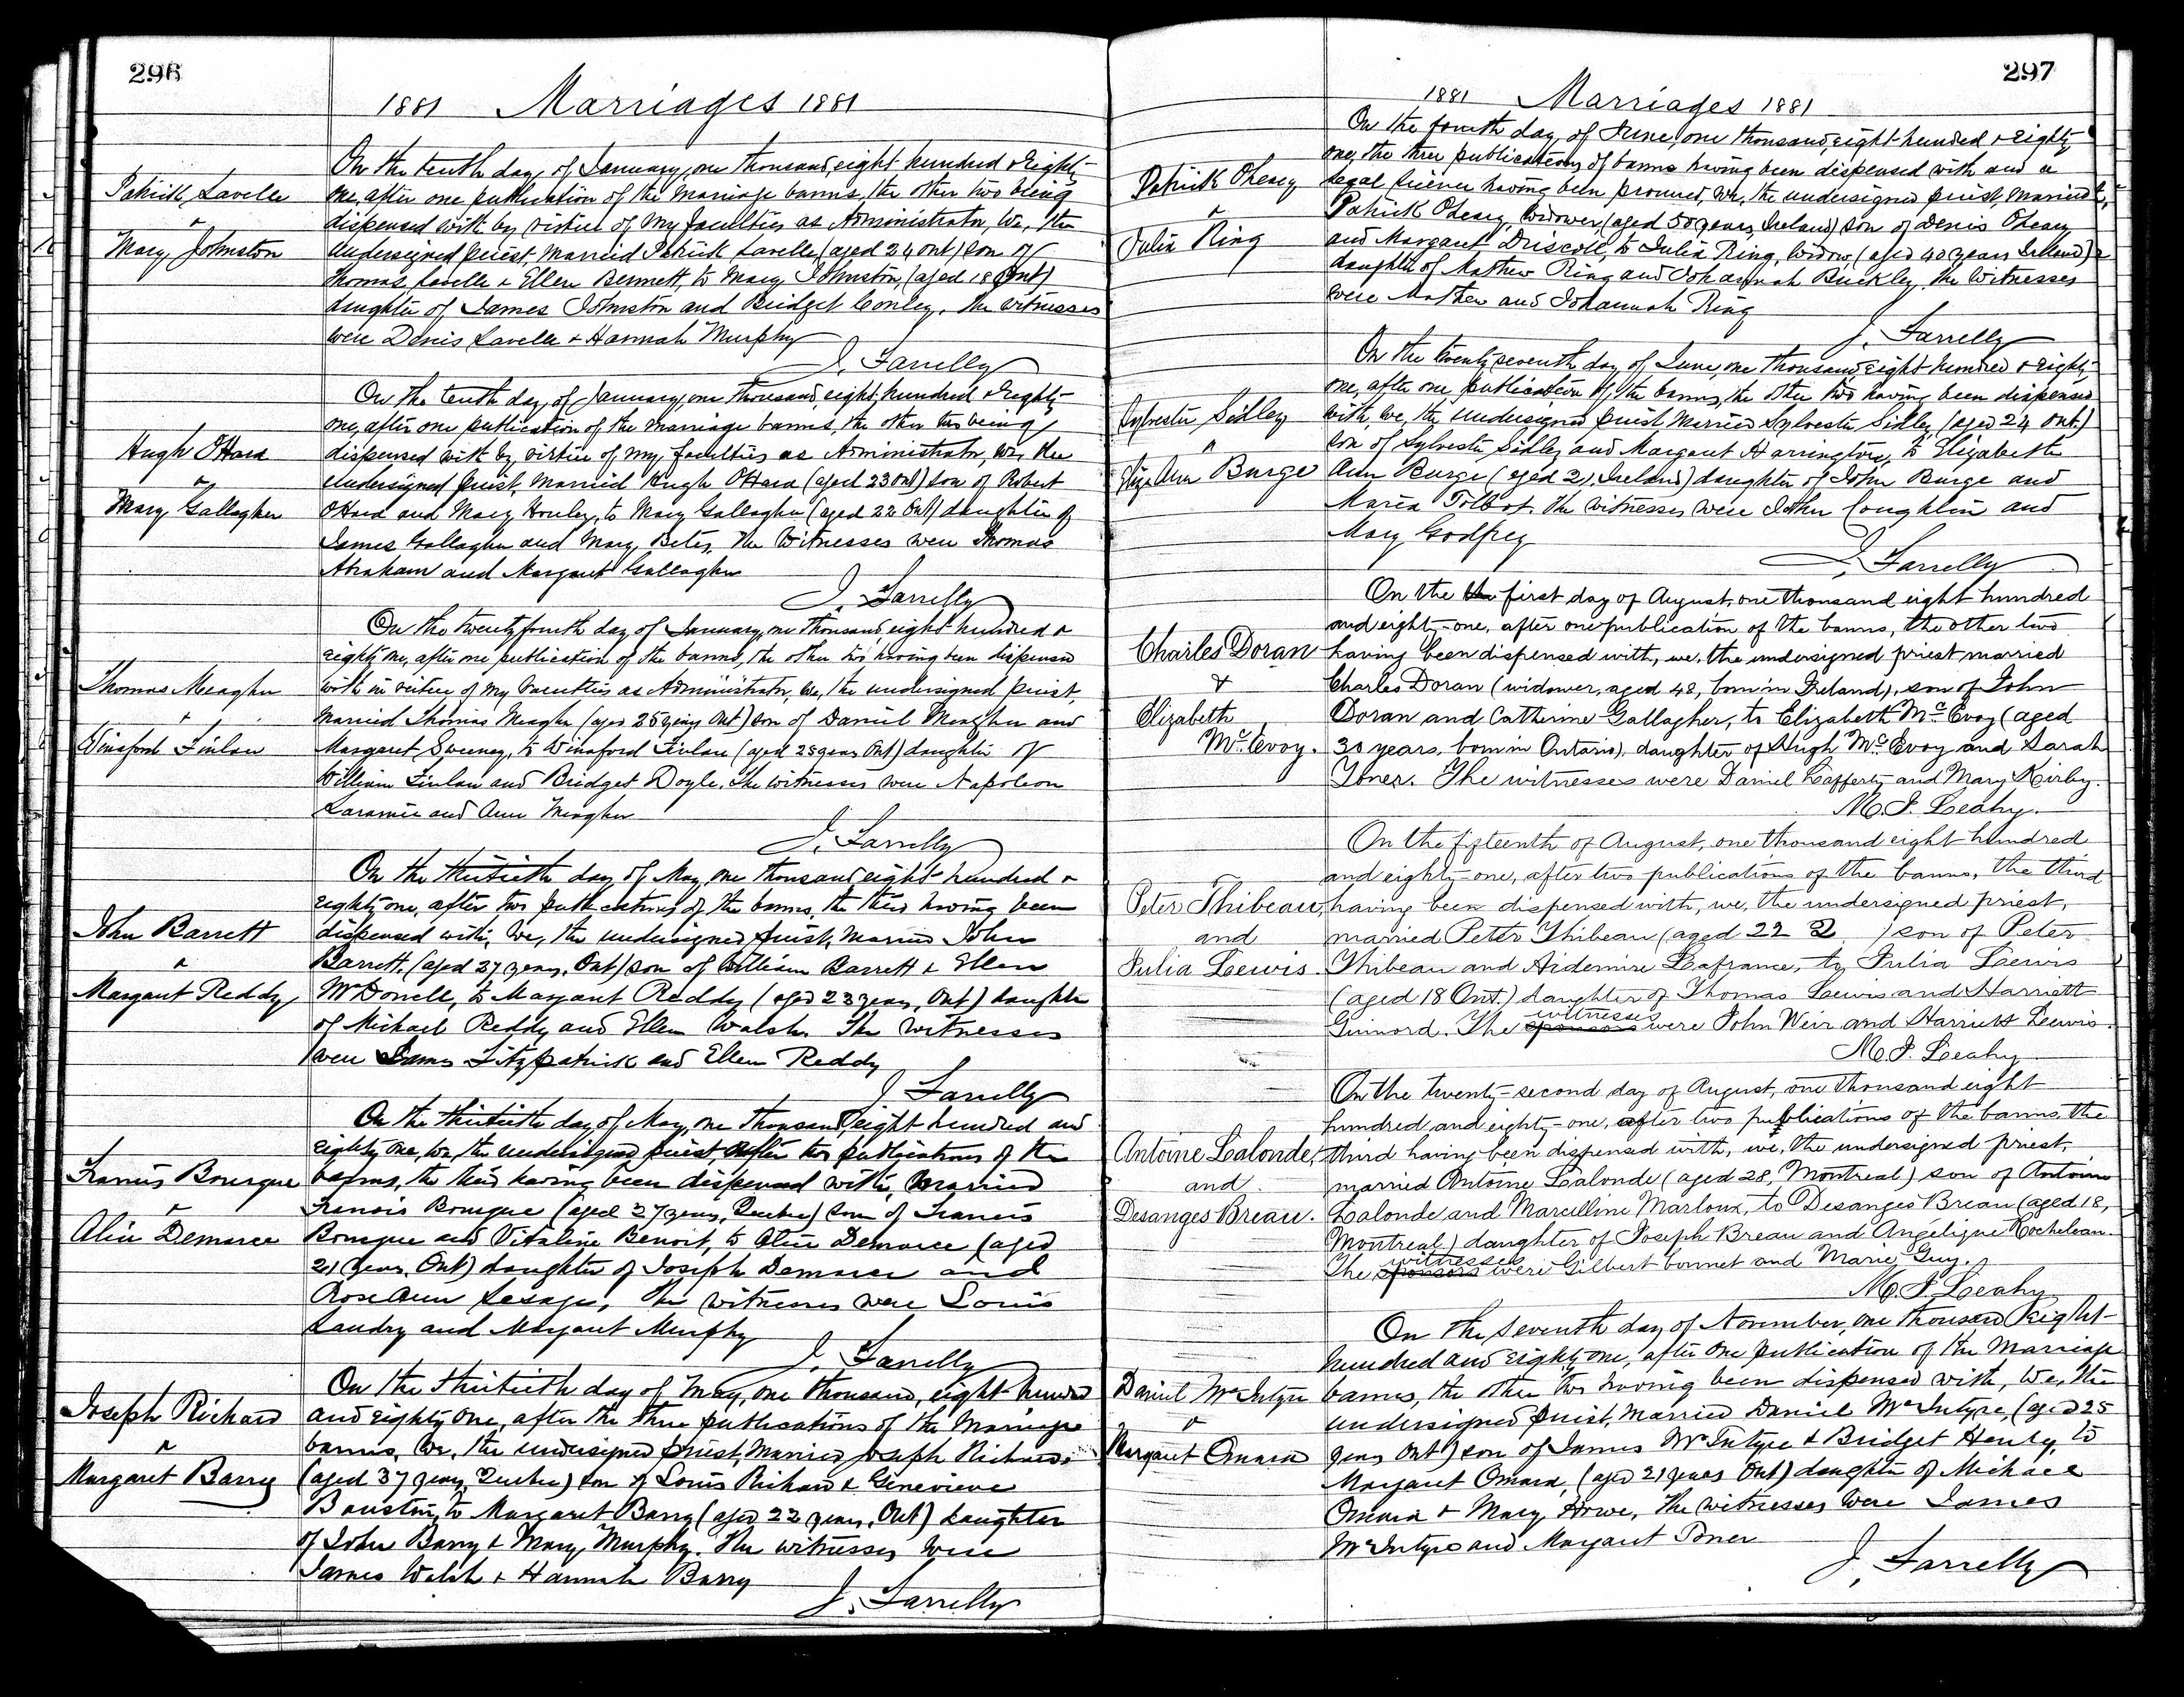 296
1881 Marriages 1881
On the tenth day of January, one thousand, eight hundred & eighty
Patrick Lavelle
one, after one publication of the marriage banns, the other two being
&
dispensed with by virtue of my faculties as Administrator, We, the
Mary Johnston
undersigned priest, married Patrick Lavelle (aged 24 Ont) son of
Thomas Lavelle & Ellen Bennett, to Mary Johnston, (aged 18 Ont)
daughter of James Johnston and Bridget Conley. The witnesses
were Denis Lavelle & Hannah Murphy
J. Farrelly
On the tenth day of January, one thousand, eight hundred & eighty-
one, after one publication of the marriage banns, the other two being
Hugh OHara
dispensed with by virtue of my faculties as Administrator, we, the
&
undersigned priest, married Hugh OHara (aged 23 Ont) son of Robert
Mary Gallagher
OHara and Mary Houley, to Mary Gallagher (aged 22 Ont) daughter of
James Gallagher and Mary The Witnesses were Thomas
Abraham and Margaret Gallagher
J. Farrelly
On the twenty fourth day of January, one thousand, eight hundred &
eighty one, after one publication of the banns, the other two having been dispensed
Thomas Meagher
with in virtue of my faculties as Administrator, We, the undersigned priest,
&
married Thomas Meagher (aged 25 years Ont) son of Daniel Meagher and
Winaford Finlan
Margaret Sweeney, to Winaford Finlan (aged 28 years Ont) daughter of
William Finlan and Bridget Doyle. The witnesses were Napoleon
Laramie and Ann Meagher
J. Farrelly
On the thirtieth day of May, one thousand, eight hundred &
eighty one, after two publications of the banns, the third having been
John Barrett
dispensed with, We, the undersigned priest, married John
&
Barrett, (aged 27 years, Ont) son of William Barrett & Ellen
Margaret Reddy
McDonell, to Margaret Reddy (aged 23 years, Ont) daughter
of Michael Reddy and Ellen Walsh. The witnesses
were James Fitzpatrick and Ellen Reddy
J Farrelly
On the thirtieth day of May, one thousand, eight hundred and
eighty one, we, the undersigned priest, after two publications of the
Francis Bourque
banns, the third having been dispensed with, married
&
Francis Bourque (aged 27 years, Quebec) son of Francis
Alice Demarce
Bourque and Vitaline Benoit, to Alice Demarce (aged
21 years, Ont) daughter of Joseph Demarce and
RoseAnn Lesage, The witnesses were Louis
Landry and Margaret Murphy
J. Farrelly
On the thirtieth day of May, one thousand, eight hundred
Joseph Richard
and eighty one, after the three publications of the Marriage
&
banns, We, the undersigned priest, married Joseph Richard,
Margaret Barry
(aged 37 years, Quebec) son of Louis Richard & Genevieve
to Margaret Barry (aged 22 years, Ont) daughter
of John Barry & Mary Murphy. The witnesses were
James Walsh & Hannah Barry
J. Farrelly
297
1881 Marriages 1881
On the fourth day of June, one thousand, eight hundred & eighty
one, the three publications of banns having been dispensed with and a
Patrick OLeary
legal license having been procured, We, the undersigned priest, married
&
Patrick OLeary, widower, (aged 50 years, Ireland) son of Denis OLeary
Julia Ring
and Margaret Driscoll, to Julia Ring, widow (aged 40 years Ireland)
daughter of Mathew Ring and Johannah Buckley. The Witnesses
were Mathew and Johannah Ring
J. Farrelly
On the twenty seventh day of June, one thousand, eight hundred & eighty-
one, after one publication of the banns, the other two having been dispensed
Sylvester Sidley
with, we, the undersigned priest married Sylvester Sidley (aged 24 Ont.)
&
son of Sylvester Sidley and Margaret Harrington, to Elizabeth
Eliza Ann Burge
Ann Burge (aged 21, Ireland) daughter of John Burge and
Maria Tolbot. The witnesses were John Coughlin and
Mary Godfrey
J. Farrelly
On the the first day of August, one thousand eight hundred
and eighty-one, after one publication of the banns, the other two
Charles Doran
having been dispensed with, we, the undersigned priest married
&
Charles Doran (widower, aged 48, born in Ireland), son of John
Elizabeth
Doran and Catherine Gallagher, to Elizabeth McEvoy (aged
McEvoy.
30 years, born in Ontario), daughter of Hugh McEvoy and Sarah
Toner. The witnesses were Daniel Lafferty and Mary Kirby.
M.J. Leahy.
On the fifteenth of August, one thousand eight hundred
and eighty-one, after two publications of the banns, the third
Peter Thibeau,
having been dispensed with, we, the undersigned priest,
and
married Peter Thibeau (aged 22 2 ) son of Peter
Julia Lewis.
Thibeau and Lafrance, to Julia Lewis
(aged 18 Ont.) daughter of Thomas Lewis and Harriett
witnesses
Guinord. The sponsors were John Weir and Harriett Lewis.
M.J. Leahy
On the twenty-second day of August, one thousand eight
hundred and eighty-one, after two publications of the banns, the
Antoine Lalonde,
third having been dispensed with, we, the undersigned priest,
and
married Antoine Lalonde (aged 28, Montreal) son of Antoine
Desanges Breau.
Lalonde and Marcelline Marloux, to Desanges Breau (aged 18,
Montreal) daughter of Joseph Breau and Angélique Rocheleau.
witnesses
The sponsors were Gilbert bonnet and Marie Guy.
M.J. Leahy
On the seventh day of November, one thousand eight-
hundred and eighty one, after one publication of the Marriage
Daniel McIntyre
banns, the other two having been dispensed with, We, the
&
undersigned priest, married Daniel McIntyre, (aged 25
Margaret Omara
years Ont) son of James McIntyre & Bridget Henly, to
Margaret Omara, (aged 21 years Ont) daughter of Michael
Omara & Mary Howe, The witnesses were James
McIntyre and Margaret Toner
J. Farrelly